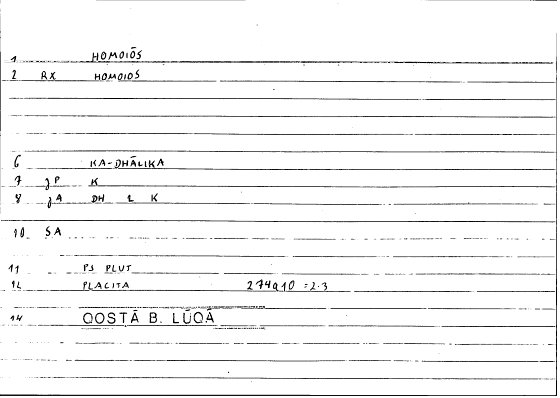 1 HOMOIŌS
2 RX HOMOIOS
6 KA-DHĀLIKA
7 JP K
8 JA DH 1 K
10 SA
11 PS PLUT
12 PLACITA 274a10 = 2.3
14 QOSTĀ B. LŪQĀ